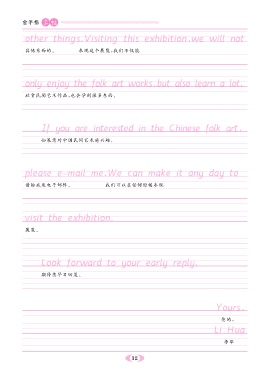 other things.Visiting this exhibition,we will not
其他东西的。 参观这个展览,我们不仅能
only enjoy the folk art works,but also learn a lot.
欣赏民间艺术作品,也会学到很多东西。
If you are interested in the Chinese folk art,
如果您对中国民间艺术感兴趣,
please e-mail me.We can make it any day to
请给我发电子邮件。 我们可以在任何时候参观
visit the exhibition.
展览。
Look forward to your early reply.
期待您早日回复。
Yours,
您的,
Li Hua
李华
32